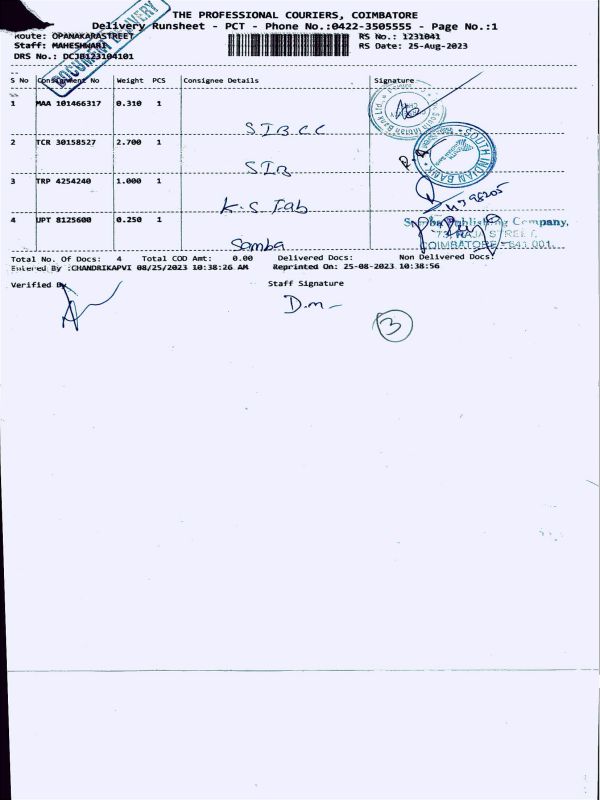 THE PROFESSIONAL COURIERS, COIMBATORE
Delivery Runsheet - PCT - Phone No.:0422-3505555 - Page No.:1
Route: OPANAKARASTREET RS No.: 1231041
Staff: MAHESHWARI RS Date: 25-Aug-2023
DRS No.: DCJB123104101
DOCUMENT DELIVERY
S No Consignment No Weight PCS Consignee Details Signature
1 MAA 101466317 0.310 1
SIB CC
2 TCR 30158527 2.700 1
SIB
SOUTH INDIAN BANK
3 TRP 4254240 1.000 1
K.S Fab
4 UPT 8125600 0.250 1
Samba
Samba Publishing Company,
RAJA STREET,
COIMBATORE - 641 001.
Total No. Of Docs: 4 Total COD Amt: 0.00 Delivered Docs: Non Delivered Docs:
Entered By :CHANDRIKAPVI 08/25/2023 10:38:26 AM Reprinted On: 25-08-2023 10:38:56
Verified By Staff Signature
D.m
3